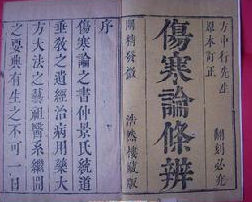 方中行先生
原本訂正
翻刻必究
傷寒論條辨
浩然樓藏版
序
傷寒論之書仲景氏統道
垂敎之遺經治病用藥大
方大法之藝祖醫系繼開
之要典有生之不可一日